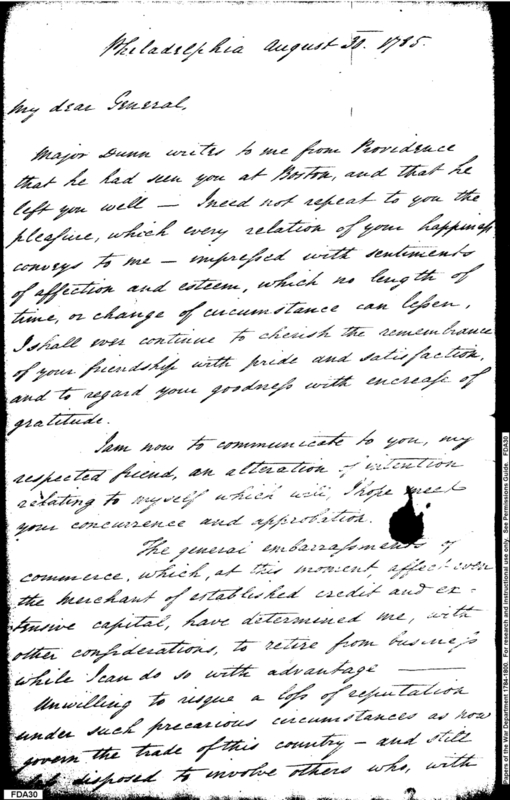 Philadelphia August 30. 1785.
My dear General,
Major Dunn writes to me from Providence
that he had seen you at Boston, and that he
left you well — I need not repeat to you the
pleasure, which every relation of your happiness
conveys to me — impressed with sentiments
of affection and esteem, which no length of
time, or change of circumstance can lessen,
I shall ever continue to cherish the remembrance
of your friendship with pride and satisfaction,
and to regard your goodness with encrease of
gratitude.
I am now to communicate to you, my
respected friend, an alteration of intention
relating to myself which will, I hope meet
your concurrence and approbation.
The general embarrassments of
commerce, which, at this moment, affect even
the merchant of established credit and ex-
tensive capital, have determined me, with
other considerations, to retire from business
while I can do so with advantage —
Unwilling to risque a loss of reputation
under such precarious circumstances as now
govern the trade of this country — and still
disposed to involve others who, with
FDA30
Papers of the War Department 1784-1800. For research and instructional use only. See Permissions Guide. FDA30